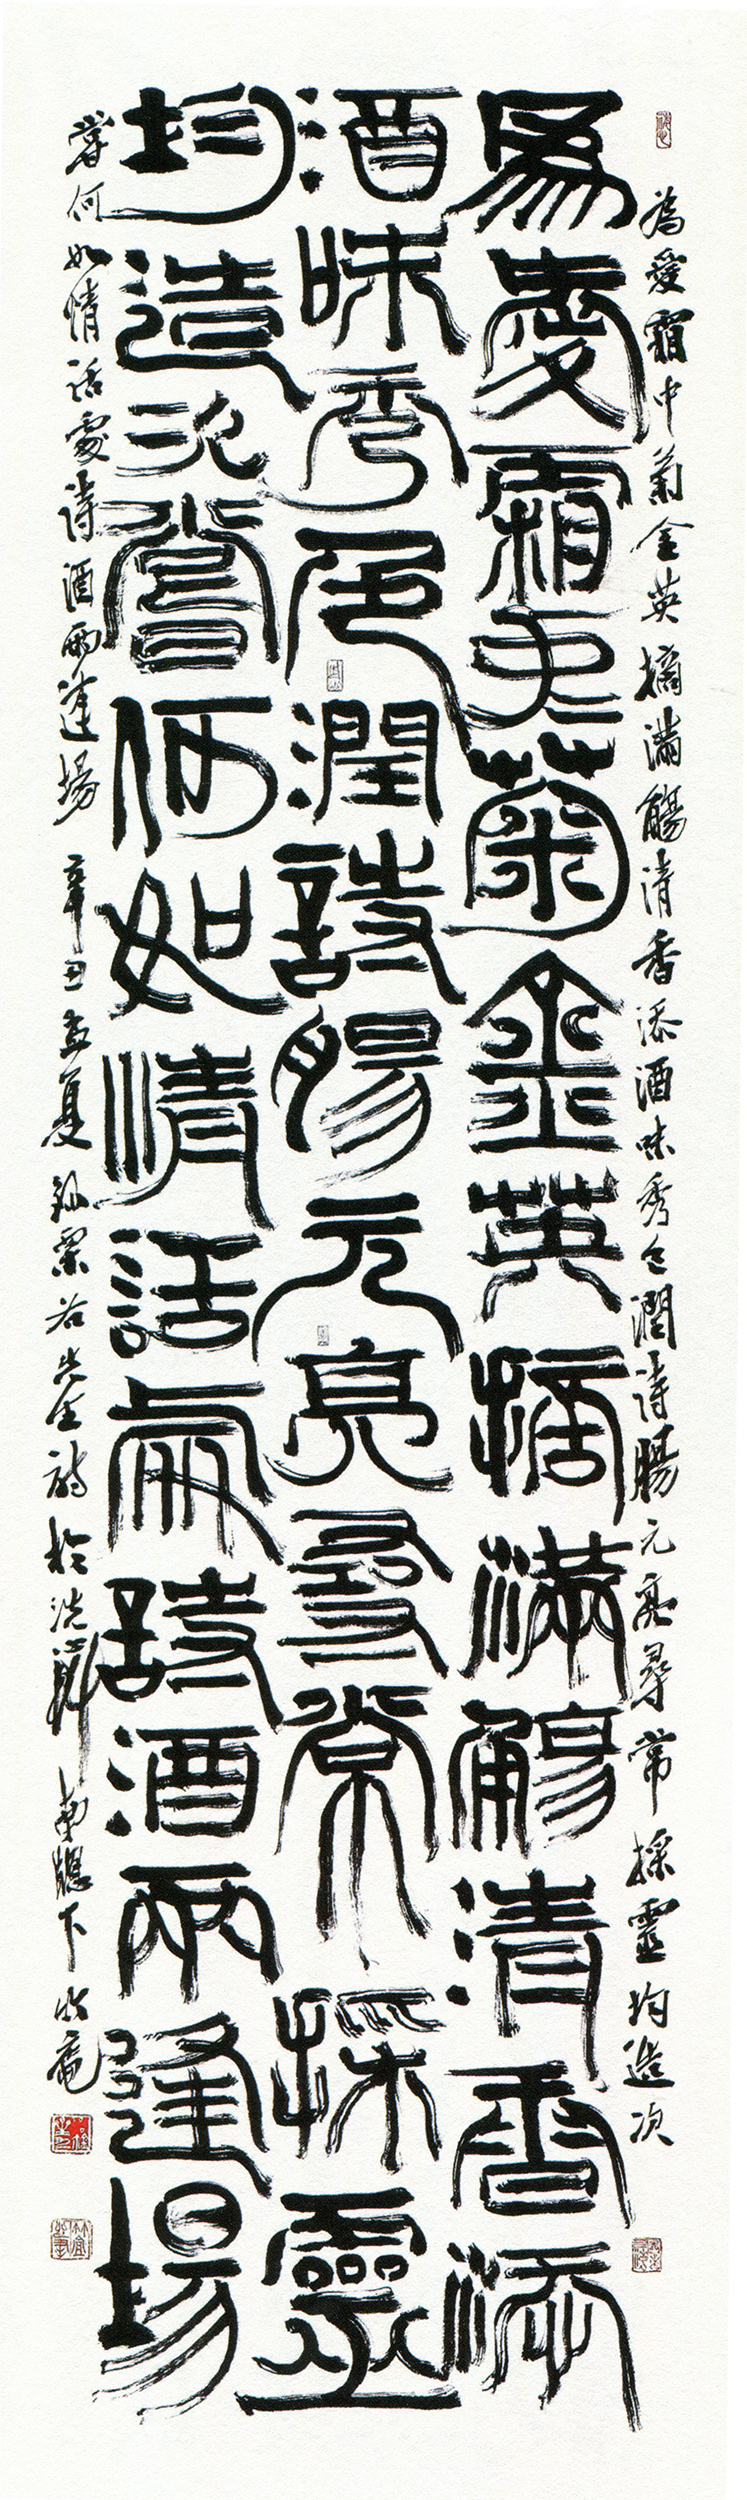 為愛霜中菊金英摘滿觴清香添酒味秀色潤詩腸元亮尋常採靈均造次
為愛霜中菊金英摘滿觴清香添
酒味秀色潤詩腸元亮尋常採靈
均造次嘗何如情話處詩酒兩逢場
嘗何如情話處詩酒兩逢場 辛丑孟夏 錄
先生詩於洗 南牕下